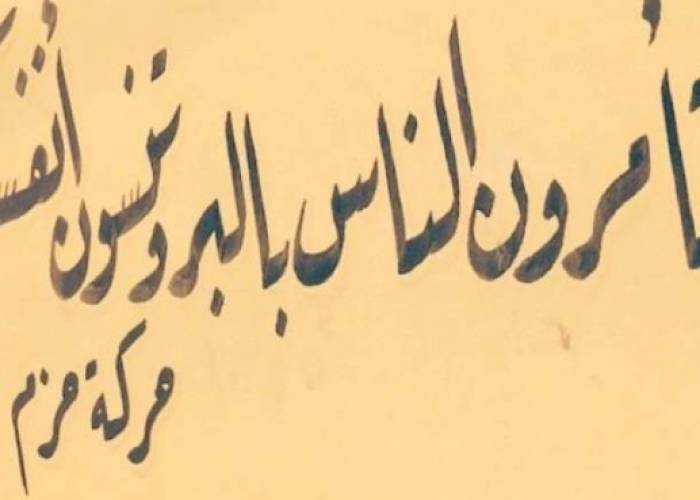 تأمرون الناس بالبر وتنسون أنفس
حركة حزم